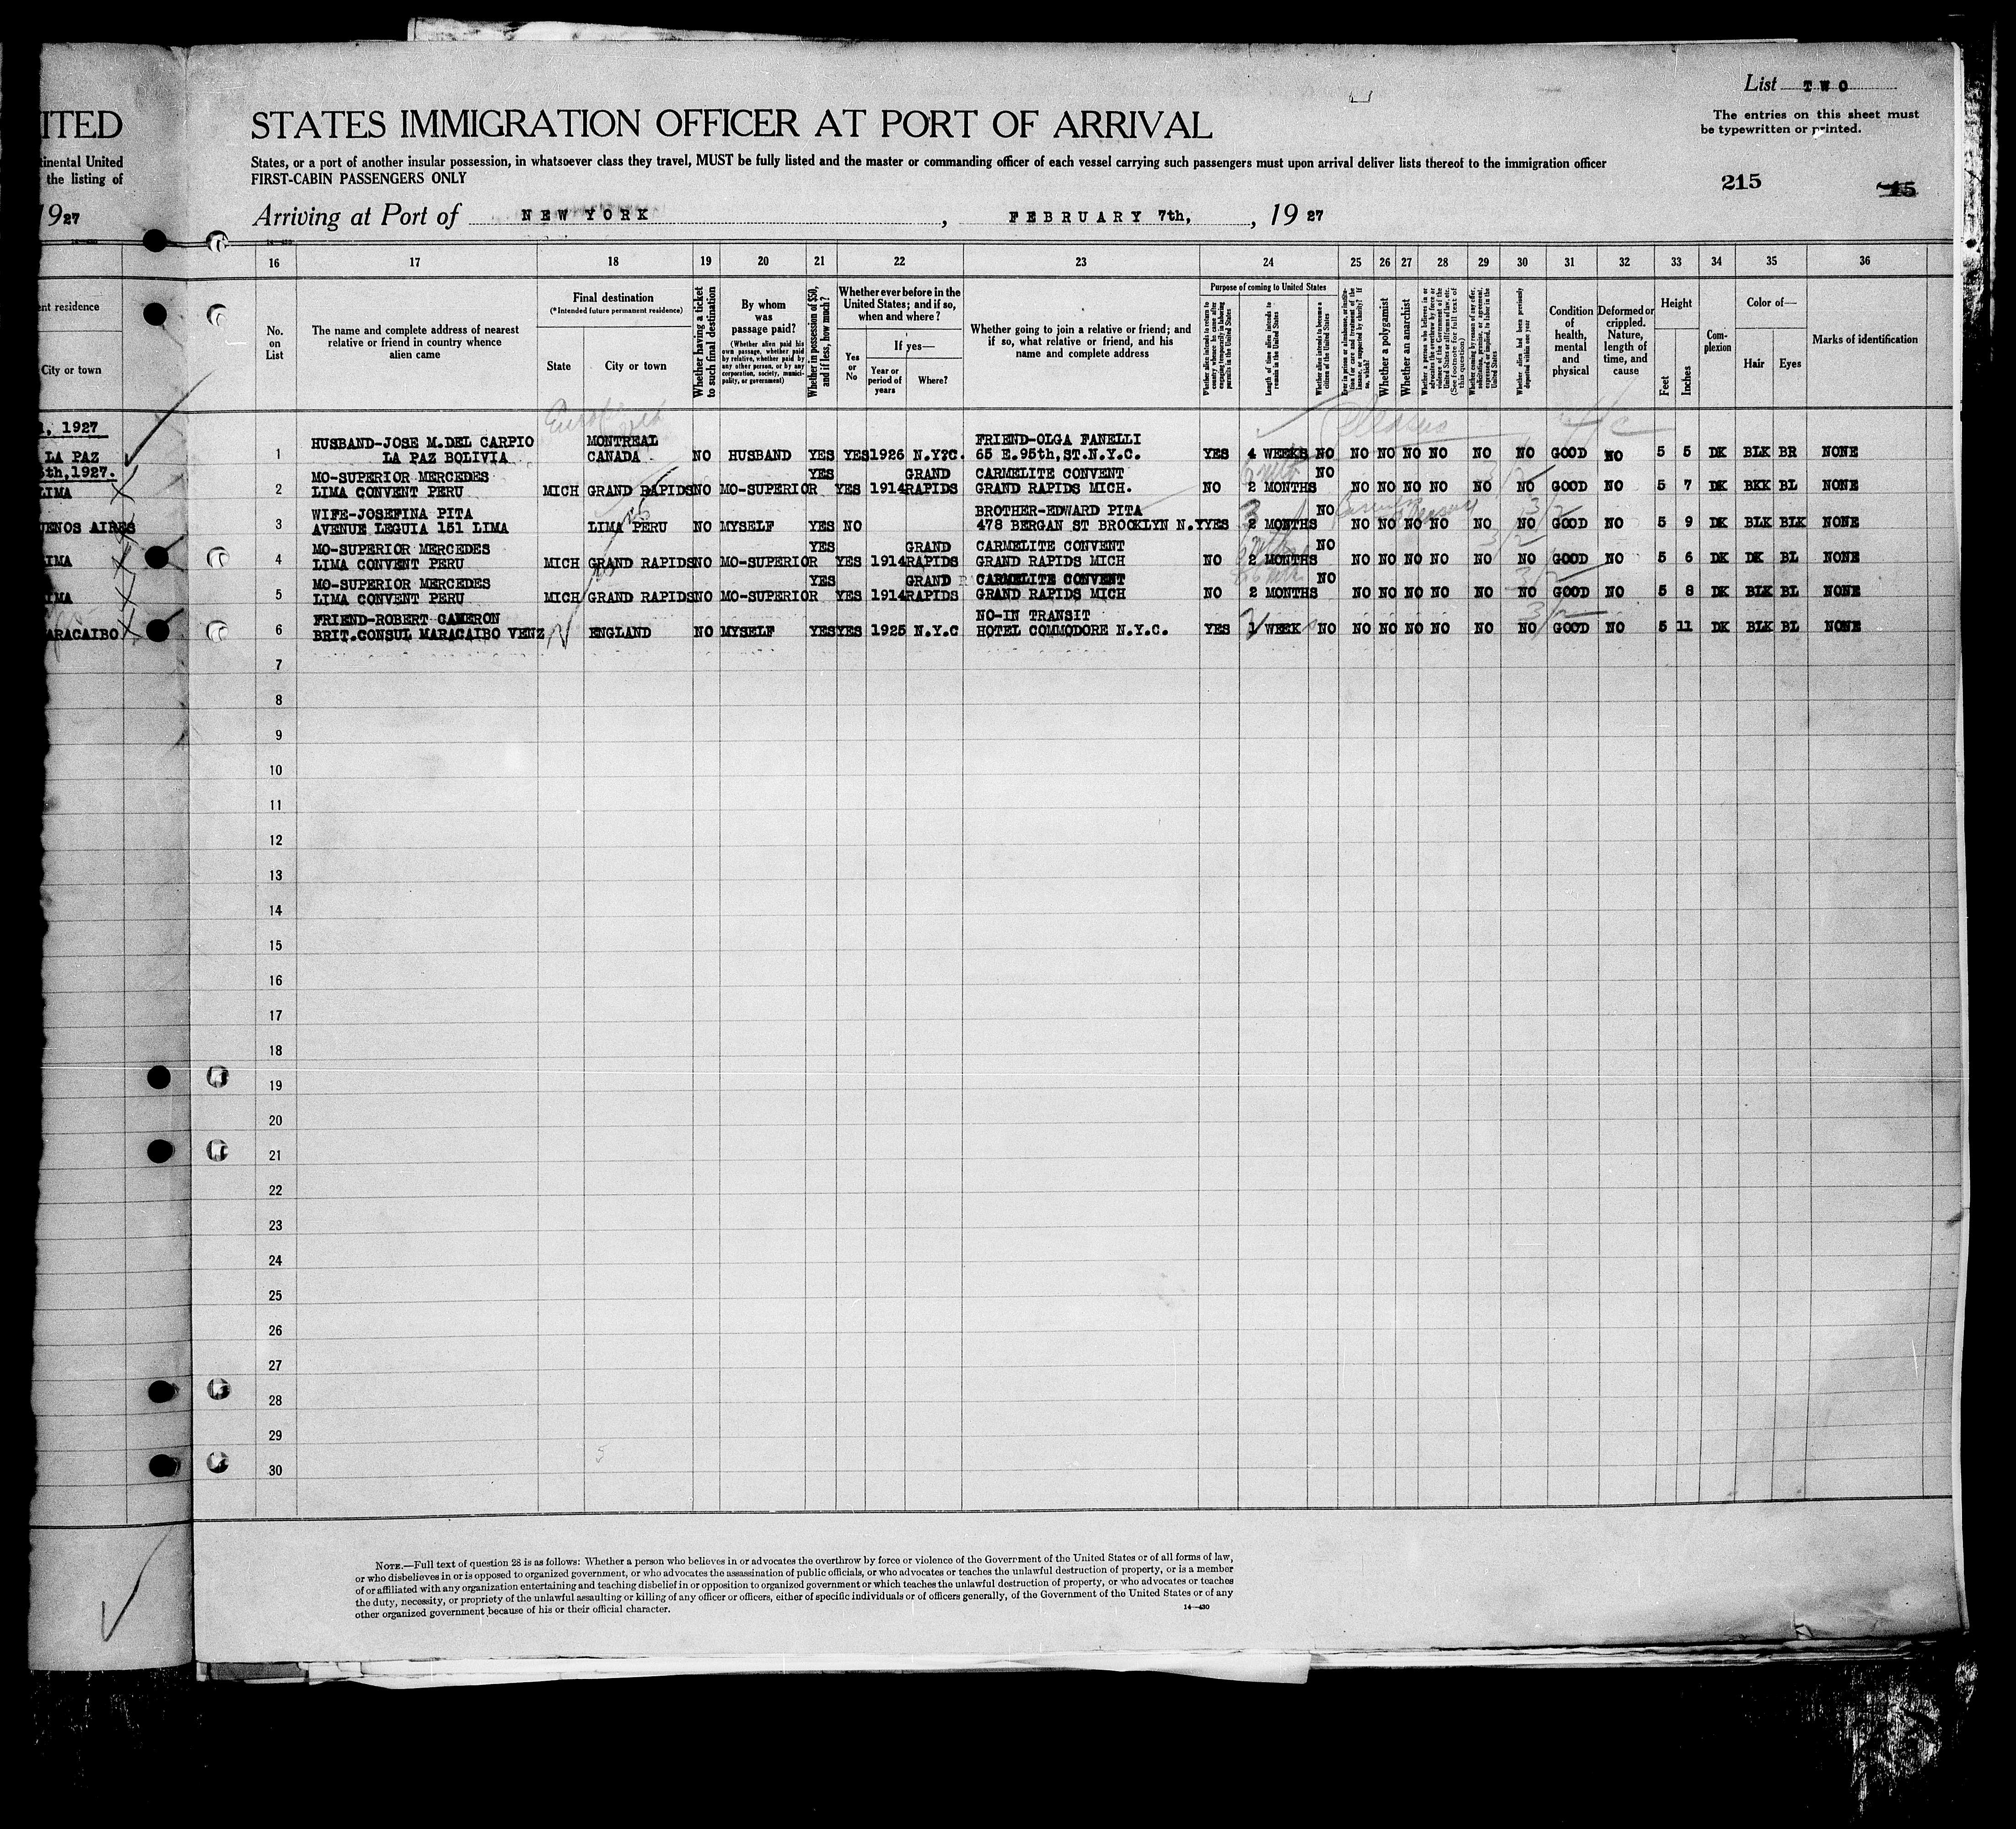 List TWO
ITED STATES IMMIGRATION OFFICER AT PORT OF ARRIVAL
The entries on this sheet must
be typewritten or printed.
tinental United
the listing of
States, or a port of another insular possession, in whatsoever class they travel, MUST be fully listed and the master or commanding officer of each vessel carrying such passengers must upon arrival deliver lists thereof to the immigration officer
FIRST-CABIN PASSENGERS ONLY
215
15
1927
Arriving at Port of NEW YORK, FEBRUARY 7th, 1927
16 17 18 19 20 21 22 23 24 25 26 27 28 29 30 31 32 33 34 35 36
ent residence
City or town
No. on List
The name and complete address of nearest relative or friend in country whence alien came
Final destination
(*Intended future permanent residence)
State
City or town
Whether having a ticket to such final destination
By whom was passage paid?
(Whether alien paid his own passage, whether paid by relative, whether paid by any other person, or by any corporation, society, municipality, or government)
Whether in possession of $50, and if less, how much?
Whether ever before in the United States; and if so, when and where?
Yes or No
If yes—
Year or period of years
Where?
Whether going to join a relative or friend; and if so, what relative or friend, and his name and complete address
Purpose of coming to United States
Whether alien intends to return to country whence he came after engaging temporarily in laboring pursuits in the United States
Length of time alien intends to remain in the United States
Whether alien intends to become a citizen of the United States
Ever in prison or almshouse, or institution for care and treatment of the insane, or supported by charity? If so, which?
Whether a polygamist
Whether an anarchist
Whether a person who believes in or advocates the overthrow by force or violence of the Government of the United States or all forms of law, etc. (See footnote for full text of this question)
Whether coming by reason of any offer, solicitation, promise, or agreement, expressed or implied, to labor in the United States
Whether alien had been previously deported within one year
Condition of health, mental and physical
Deformed or crippled. Nature, length of time, and cause
Height
Feet
Inches
Complexion
Color of—
Hair
Eyes
Marks of identification
, 1927
LA PAZ
5th, 1927.
LIMA
UENOS AIRES
IMA
IMA
ARACAIBO
1 HUSBAND-JOSE M.DEL CARPIO LA PAZ BOLIVIA MONTREAL CANADA NO HUSBAND YES YES 1926 N.Y?C. FRIEND-OLGA FANELLI 65 E.95th,ST.N.Y.C. YES 4 WEEKS NO NO NO NO NO NO NO GOOD NO 5 5 DK BLK BR NONE
2 MO-SUPERIOR MERCEDES LIMA CONVENT PERU MICH GRAND RAPIDS NO MO-SUPERIOR YES YES 1914 GRAND RAPIDS CARMELITE CONVENT GRAND RAPIDS MICH. NO 2 MONTHS NO NO NO NO NO NO NO GOOD NO 5 7 DK BKK BL NONE
3 WIFE-JOSEFINA PITA AVENUE LEGUIA 151 LIMA LIMA PERU NO MYSELF YES NO BROTHER-EDWARD PITA 478 BERGAN ST BROOKLYN N.Y YES 2 MONTHS NO NO NO NO NO NO NO GOOD NO 5 9 DK BLK BLK NONE
4 MO-SUPERIOR MERCEDES LIMA CONVENT PERU MICH GRAND RAPIDS NO MO-SUPERIOR YES YES 1914 GRAND RAPIDS CARMELITE CONVENT GRAND RAPIDS MICH NO 2 MONTHS NO NO NO NO NO NO NO GOOD NO 5 6 DK DK BL NONE
5 MO-SUPERIOR MERCEDES LIMA CONVENT PERU MICH GRAND RAPIDS NO MO-SUPERIOR YES YES 1914 GRAND RAPIDS CARMELITE CONVENT GRAND RAPIDS MICH NO 2 MONTHS NO NO NO NO NO NO NO GOOD NO 5 8 DK BLK BL NONE
6 FRIEND-ROBERT CAMERON BRIT.CONSUL MARACAIBO VENZ ENGLAND NO MYSELF YES YES 1925 N.Y.C NO-IN TRANSIT HOTEL COMMODORE N.Y.C. YES 1 WEEK NO NO NO NO NO NO NO GOOD NO 5 11 DK BLK BL NONE
7
8
9
10
11
12
13
14
15
16
17
18
19
20
21
22
23
24
25
26
27
28
29
30
NOTE.—Full text of question 28 is as follows: Whether a person who believes in or advocates the overthrow by force or violence of the Government of the United States or of all forms of law,
or who disbelieves in or is opposed to organized government, or who advocates the assassination of public officials, or who advocates or teaches the unlawful destruction of property, or is a member
of or affiliated with any organization entertaining and teaching disbelief in or opposition to organized government or which teaches the unlawful destruction of property, or who advocates or teaches
the duty, necessity, or propriety of the unlawful assaulting or killing of any officer or officers, either of specific individuals or of officers generally, of the Government of the United States or of any
other organized government because of his or their official character.
14—430